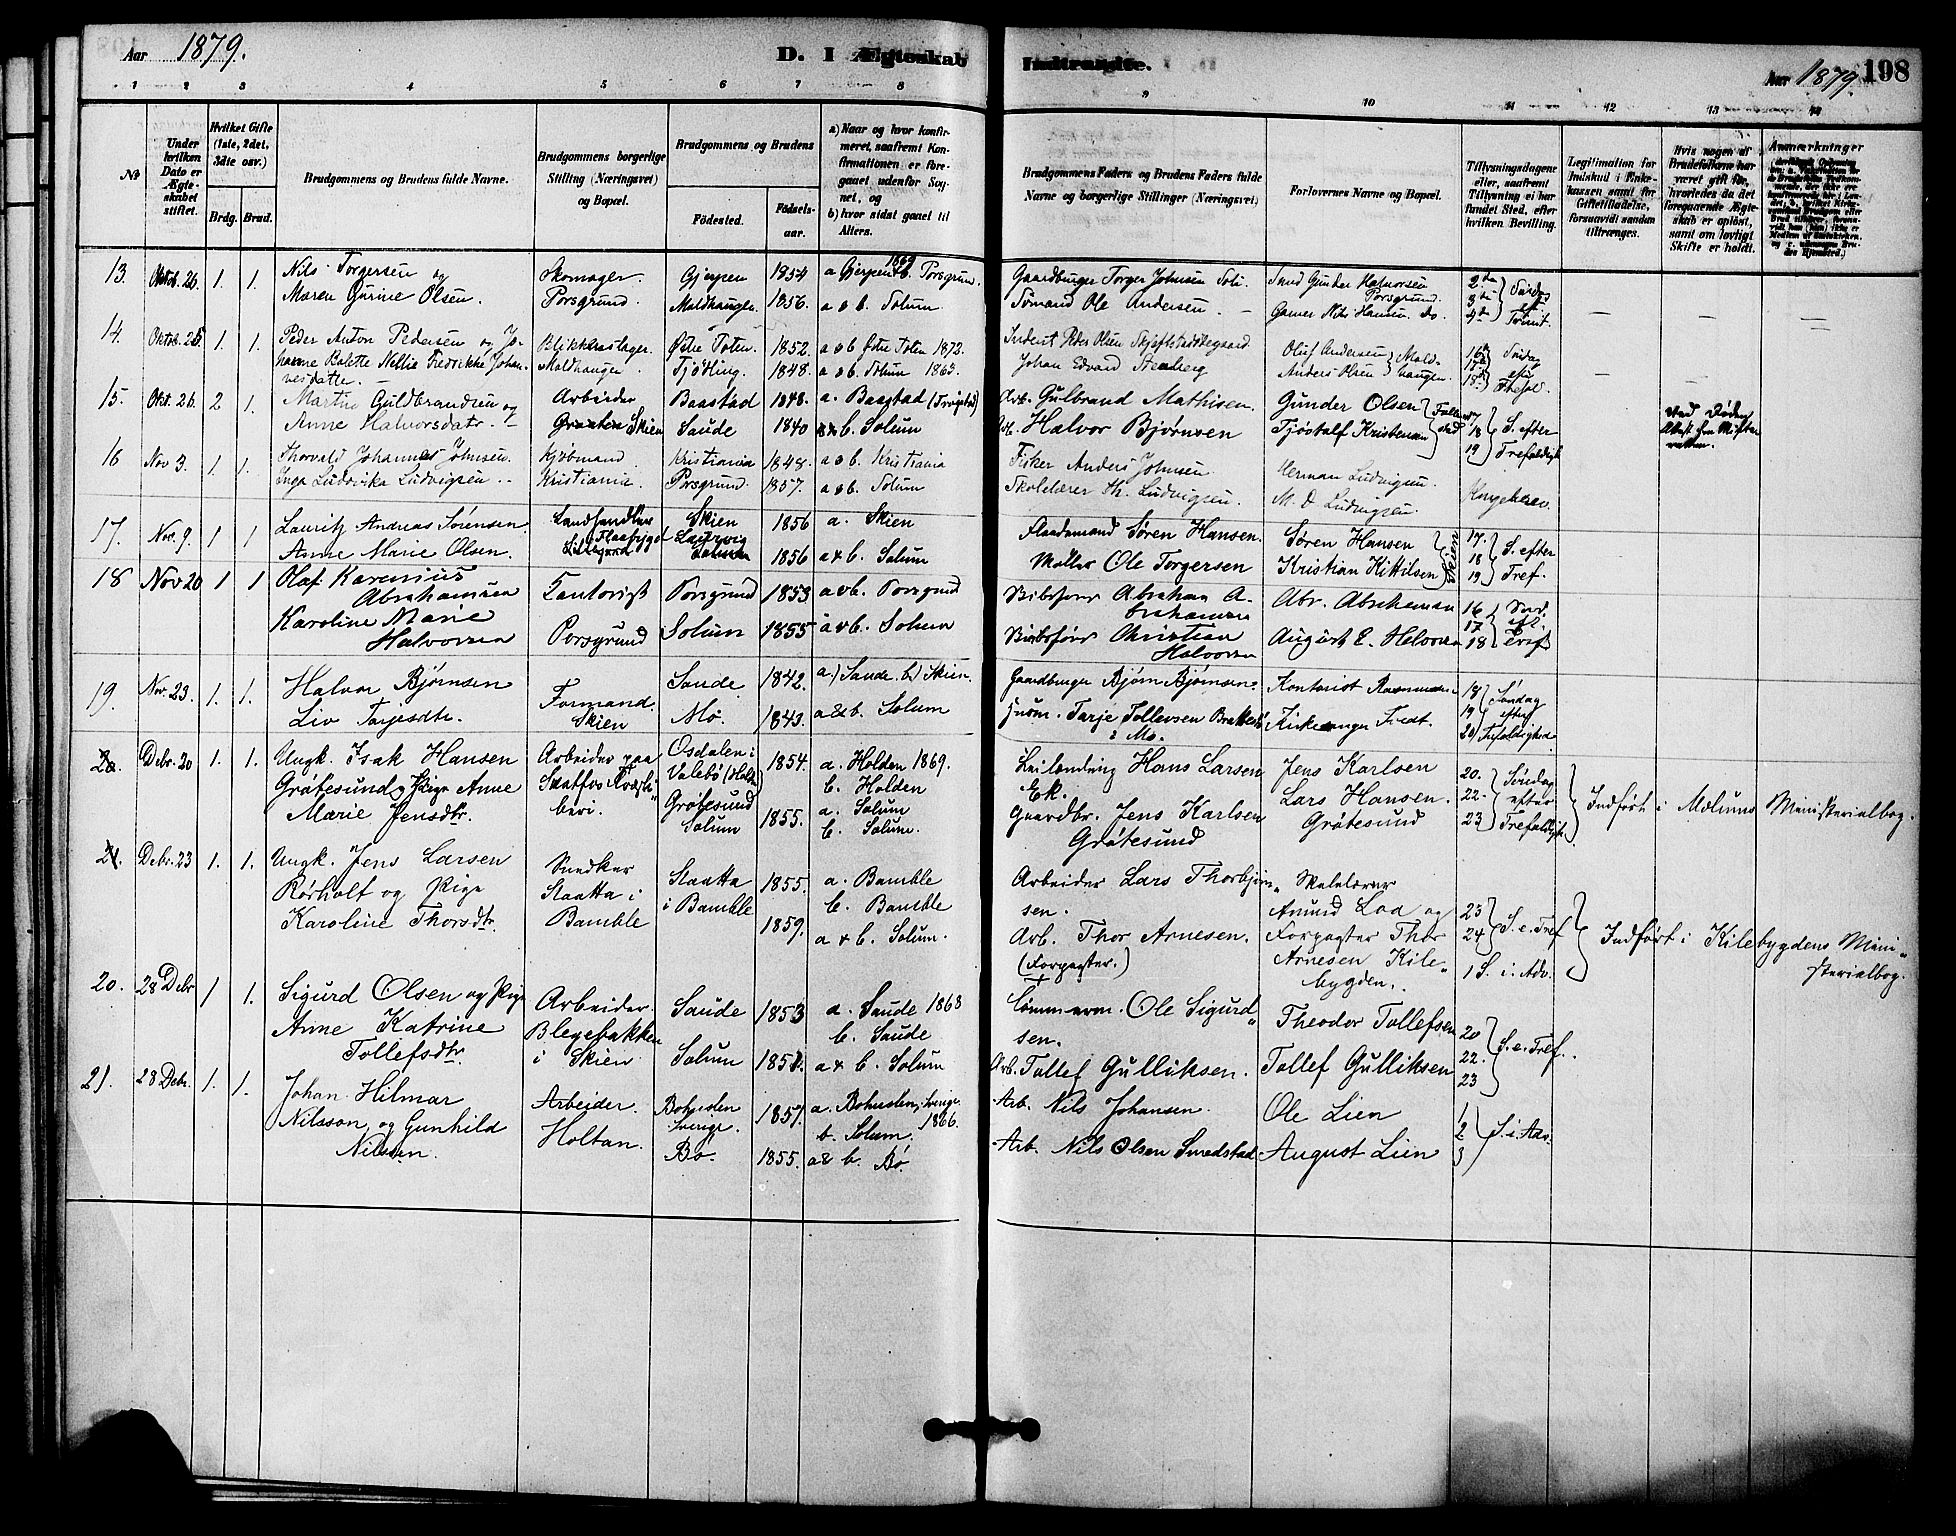 Aar 1879.
D. I Ægteskab
Indtraadte.
Aar 1879. 198
1 2 3 4 5 6 7 8 9 10 11 12 13 14
No
Under hvilken Dato er Ægteskabet stiftet.
Hvilket Gifte (1ste, 2det, 3die osv.)
Brdg. Brud.
Brudgommens og Brudens fulde Navne.
Brudgommens borgerlige Stilling (Næringsvei) og Bopæl.
Brudgommens og Brudens
Fødested. Fødselsaar.
a) Naar og hvor konfirmeret, saafremt Konfirmationen er foregaaet udenfor Sognet, og
b) hvor sidst gaaet til Alters.
Brudgommens Faders og Brudens Faders fulde Navne og borgerlige Stillinger (Næringsvei)
Forlovernes Navne og Bopæl.
Tillysningsdagene eller, saafremt Tillysning ei har fundet Sted, efter hvilken Bevilling.
Legitimation for Indskud i Enkekassen samt for Giftetilladelse, forsaavidt saadan tiltrænges.
Hvis nogen af Brudefolkene har været gift før, hvorledes da det foregaaende Ægteskab er opløst, samt om lovligt Skifte er holdt.
Anmærkninger
13. Oktob. 26. 1. 1. Nils Torgersen og Skomager Gjerpen 1854 a Gjerpen 1869 b. Porsgrund. Gaardbruger Torger Johnsen Gunder Halvorsen Porsgrund. 2den 3die 4de Søndag eft Trinit.
Maren Gurine Olsen. Porsgrund. Moldhaugen 1856. a o b. Solum. Sømand Ole Andersen. Nils Hansen do.
14. Oktob. 26. 1. 1. Peder Anton Pedersen og Jo- Blikkenslager. Østre Toten. 1852. a o b Østre Toten 1872. Peder Olsen Oluf Andersen Mold-
hanne Bolette Nellie Fredrikke Johan- Moldhaugen. Tjødling. 1848. a o b. Solum 1863. Johan Edvard Stenberg Anders Olsen haugen 16 17 18 Søndag eft Trefold.
nesdatter.
15. Okt. 26 2 1. Martin Guldbrandsen og Arbeider Baastad 1848. a. Baastad (Trøgstad) Arb. Gulbrand Mathisen. Gunder Olsen 17 18 19 S. efter Trefoldigh.
Anne Halvorsdatr. Graaten Skien Saude 1840 a & b. Solum Arb. Halvor Bjørnsen Tjøstolf Kristensen
Ved Døden
16 Nov 3. 1. 1. Thorvald Johannes Johnsen. Kjøbmand. Kristiania 1848. a o b. Kristiania Fisker Anders Johnsen Herman Ludvigsen. Kongebrev
Inga Ludvikka Ludvigsen. Kristiania. Porsgrund. 1857. a o b. Solum Skolelærer Th. Ludvigsen. M. D Ludvigsen.
17. Nov. 9. 1 1 Lauritz Andreas Sørensen Landhandler Skien 1856 a. Skien Søren Hansen. Søren Hansen Skien 17. 18 19 S. efter Tref.
Anne Marie Olsen. Flaabygd Laurvig Solum 1856 a & b. Solum Møller Ole Torgersen Kristian Kittilsen
18 Nov 20 1 1 Olaf Karenius Kontorist Porsgrund 1853 a o b. Porsgrund Skibsfører Abraham A- Abr. Abrahamsen 16 17 18 Tref
Abrahamsen brahamsen
Karoline Marie Porsgrund Solum 1855 a o b. Solum Skibsfører Christian August E. Halvorsen
Halvorsen Halvorsen
19 Nov. 23. 1. 1. Halvor Bjørnsen Formand Saude 1842. a.) Saude, b.) Skien. Gaardbruger Bjørn Bjørnsen. Kontorist Rasmussen 18 19 20 Søndag efter Trefoldighed
Liv Tarjesdtr. Skien Mo. 1843. a & b. Solum Tarje Tollevsen Kirkesanger Tredt.
i Mo.
20. Debr. 20 1. 1. Ungk. Isak Hansen Arbeider paa Osdalen i 1854. a. Holden 1869. Leilænding Hans Larsen Jens Karlsen 20. 22. 23 Søndag efter Trefoldigh. Indført i Melums Ministerialbog.
Grøtesund og Pige Anne Skotfos Træsli- Valebø (Holden) b. Holden Ek. Lars Hansen.
Marie Jensdtr. beri. Grøtesund Solum 1855. a. Solum b. Solum. Gaardbr. Jens Karlsen Grøtesund Grøtesund
21. Debr. 23 1. 1. Ungk. Jens Larsen Snedker Staatta 1855. a. Bamble Arbeider Lars Thorbjørn- Skolelærer
Rørholt og Pige Staatta i i Bamble b. Bamble sen. Amund Loa og 23 24 S. e. Tref Indført i Kilebygdens Mini-
Karoline Thorsdtr. Bamble 1859. a & b. Solum. Arb. Thor Arnesen. Forpagter Thor sterialbog.
(Forpagter.) Arnesen Kile- 1 S. i. Adv.
bygden.
20. 28 Debr 1 1. Sigurd Olsen og Pige Arbeider Saude 1853 a. Saude 1868 Tømmerm. Ole Sigurd- Theodor Tollefsen 20 22. 23 S. e. Tref.
Anne Katrine Blegebakken b. Saude sen.
Tollefsdtr. i Skien Solum a & b. Solum Arb. Tollef Gulliksen. Tollef Gulliksen
21. 28 Debr. 1. 1. Johan Hilmar Arbeider. Bohuslen 1857. a. Bohuslen, Sverige. 1866. Arb. Nils Johansen. Ole Lien 1 2 3 S. i. Adv.
Nilsson og Gunhild Holtan. Sverige. b. Solum.
Nilssen. Bø. 1855. a & b. Bø. Arb. Nils Olsen Smedstad August Lien